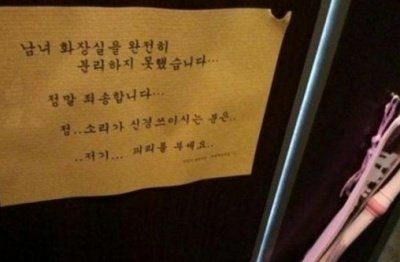 남녀 화장실을 완전히
분리하지 못했습니다...
정말 죄송합니다...
점..소리가 신경쓰이시는 분은..
..저기... 피리를 부세요..